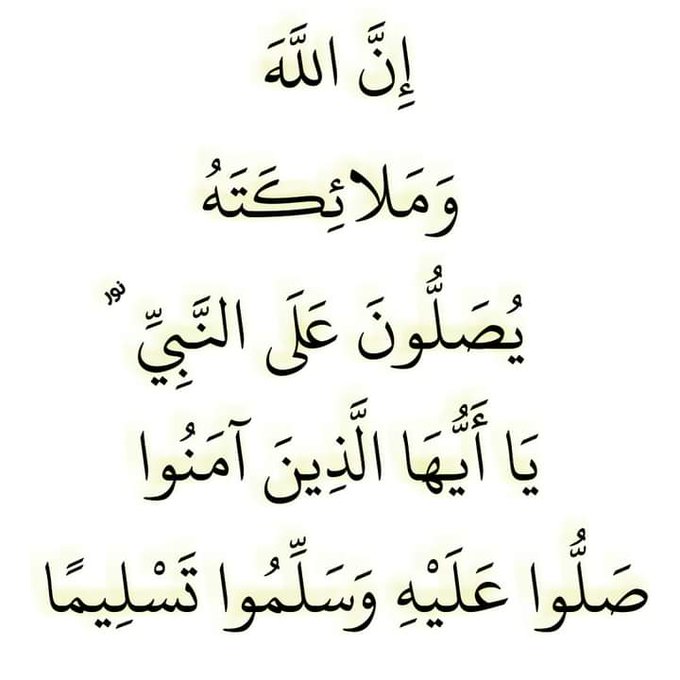 إِنَّ اللَّهَ
وَمَلَائِكَتَهُ
يُصَلُّونَ عَلَى النَّبِيِّ ۚ نور
يَا أَيُّهَا الَّذِينَ آمَنُوا
صَلُّوا عَلَيْهِ وَسَلِّمُوا تَسْلِيمًا